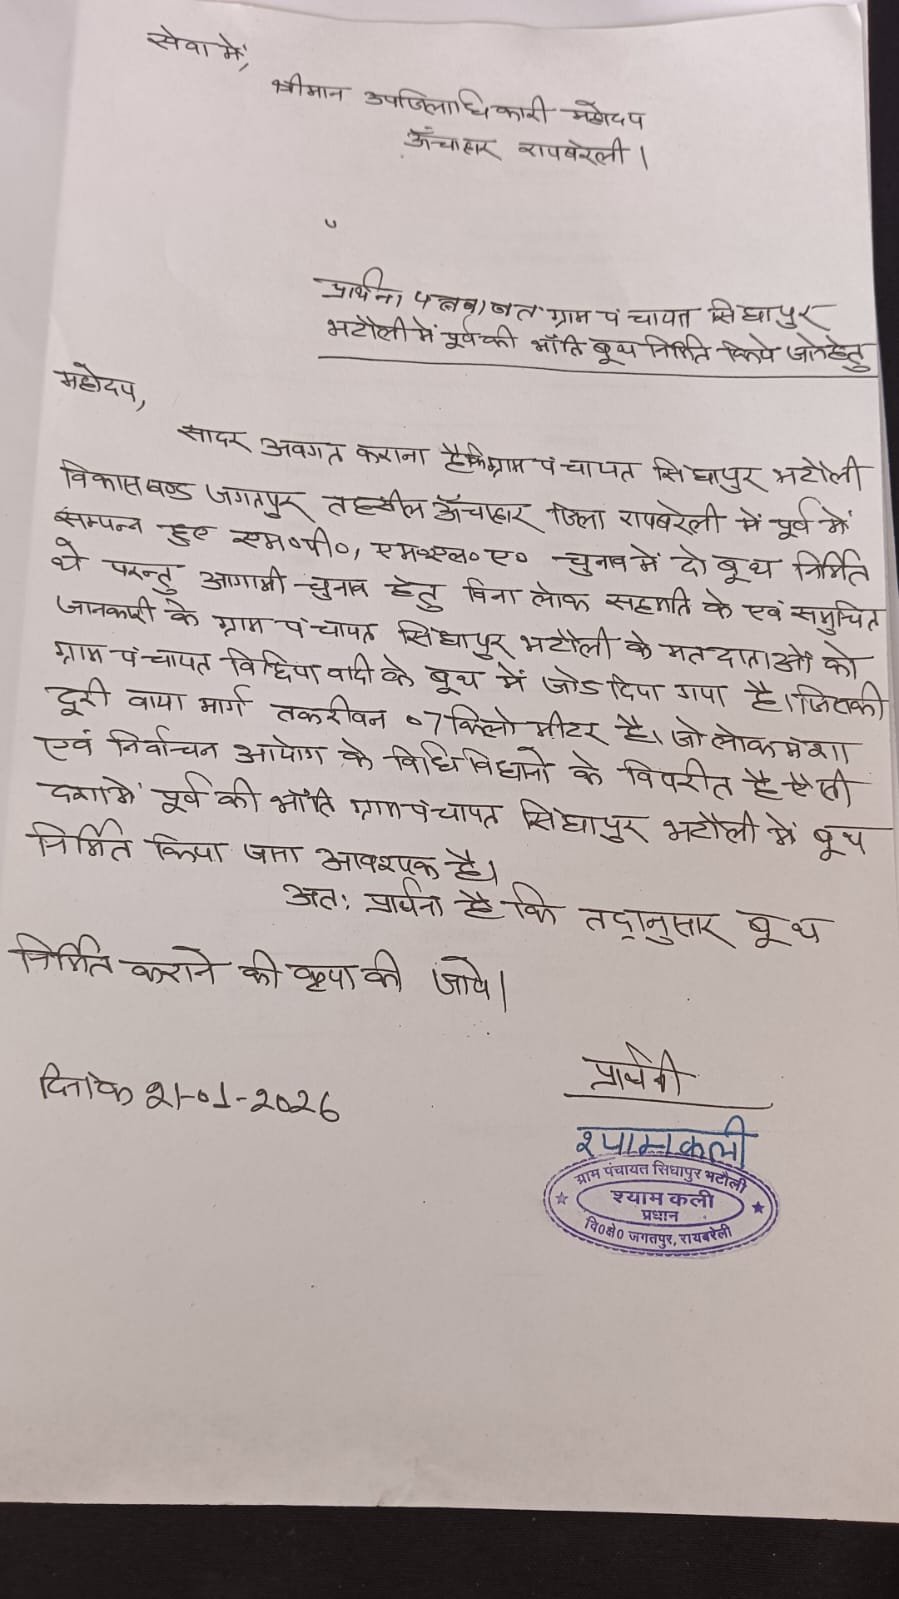 सेवा में,
श्रीमान उपजिलाधिकारी महोदय
ऊँचाहार रायबरेली।
प्रार्थना पत्र बाबत ग्राम पंचायत सिधापुर
भटौली में पूर्व की भाँति बूथ निर्मित किये जाने हेतु
महोदय,
सादर अवगत कराना है कि ग्राम पंचायत सिधापुर भटौली
विकासखण्ड जगतपुर तहसील ऊँचाहार जिला रायबरेली में पूर्व में
सम्पन्न हुए एम०पी०, एम०एल०ए० चुनाव में दो बूथ निर्मित
थे परन्तु आगामी चुनाव हेतु बिना लोक सहमति के एवं समुचित
जानकारी के ग्राम पंचायत सिधापुर भटौली के मतदाताओं को
ग्राम पंचायत विधिया वादी के बूथ में जोड दिया गया है। जिसकी
दूरी वाया मार्ग तकरीवन ०7 किलो मीटर है। जो लोक मंशा
एवं निर्वाचन आयोग के विधि विधानो के विपरीत है ऐसी
दशा में पूर्व की भाँति ग्राम पंचायत सिधापुर भटौली में बूथ
निर्मित किया जाना आवश्यक है।
अतः प्रार्थना है कि तद्नुसार बूथ
निर्मित कराने की कृपा की जाये।
प्रार्थनी
दिनांक 21-०1-2026
श्यामकली
ग्राम पंचायत सिधापुर भटौली
श्याम कली
प्रधान
वि०क्षे० जगतपुर, रायबरेली